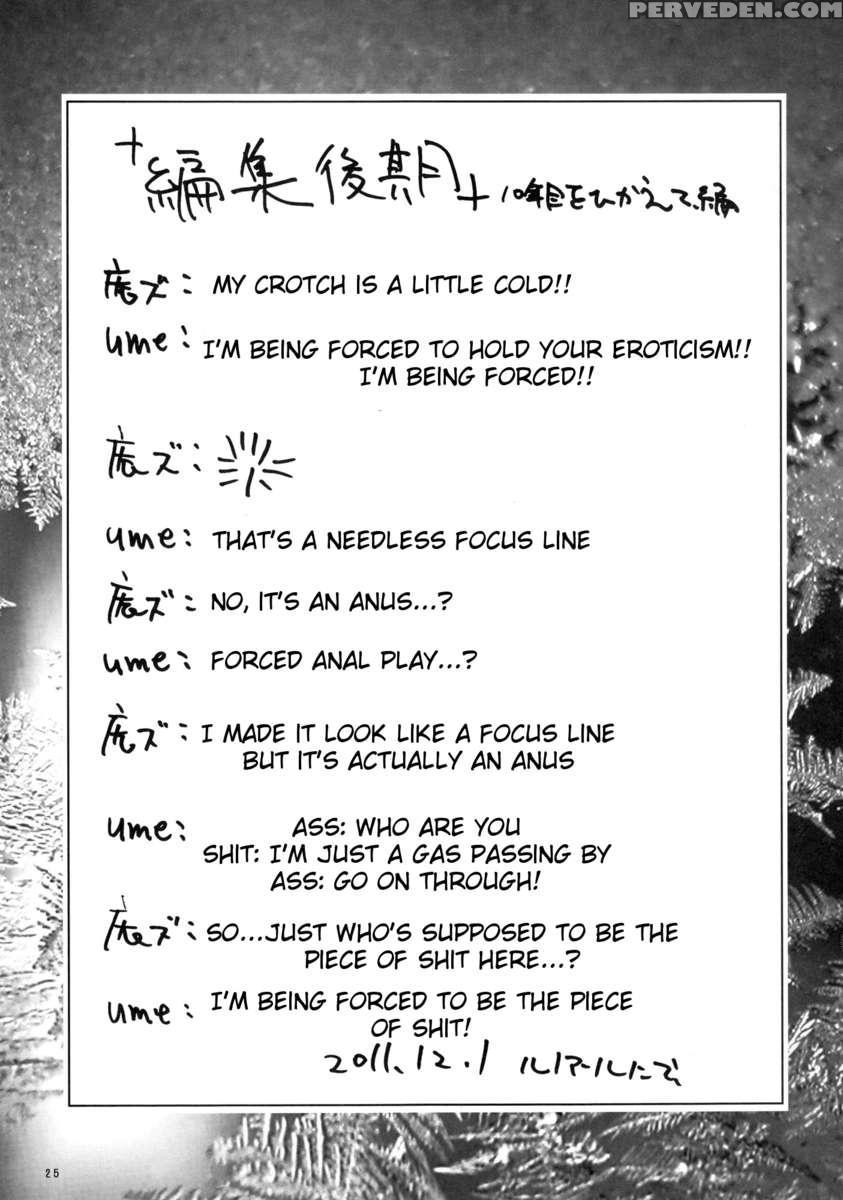 PERVEDEN.COM
+編集後期+ 10年目をひかえて、編
底ズ: MY CROTCH IS A LITTLE COLD!!
ume: I'M BEING FORCED TO HOLD YOUR EROTICISM!!
I'M BEING FORCED!!
底ズ:
ume: THAT'S A NEEDLESS FOCUS LINE
底ズ: NO, IT'S AN ANUS...?
ume: FORCED ANAL PLAY...?
底ズ: I MADE IT LOOK LIKE A FOCUS LINE
BUT IT'S ACTUALLY AN ANUS
ume: ASS: WHO ARE YOU
SHIT: I'M JUST A GAS PASSING BY
ASS: GO ON THROUGH!
底ズ: SO...JUST WHO'S SUPPOSED TO BE THE
PIECE OF SHIT HERE...?
ume: I'M BEING FORCED TO BE THE PIECE
OF SHIT!
2011.12.1 ルノアールにて
25